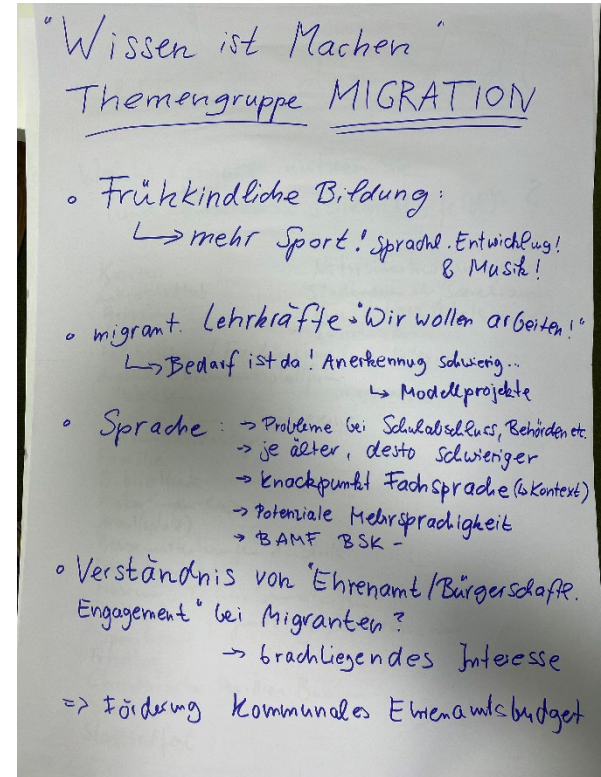 "Wissen ist Machen"
Themengruppe MIGRATION
• Frühkindliche Bildung:
↳ mehr Sport! sprachl. Entwicklug!
& Musik!
• migrant. Lehrkräfte: "Wir wollen arbeiten!"
↳ Bedarf ist da! Anerkennug schwierig...
↳ Modellprojekte
• Sprache: → Probleme bei Schulabschluss, Behörden etc.
→ je älter, desto schwieriger
→ Knackpunkt Fachsprache (↳ Kontext)
→ Potenziale Mehrsprachigkeit
→ BAMF BSK -
• Verständnis von "Ehrenamt/Bürgerschaftl.
Engagement" bei Migranten?
→ brachliegendes Interesse
=> Förderung kommunales Ehrenamtsbudget